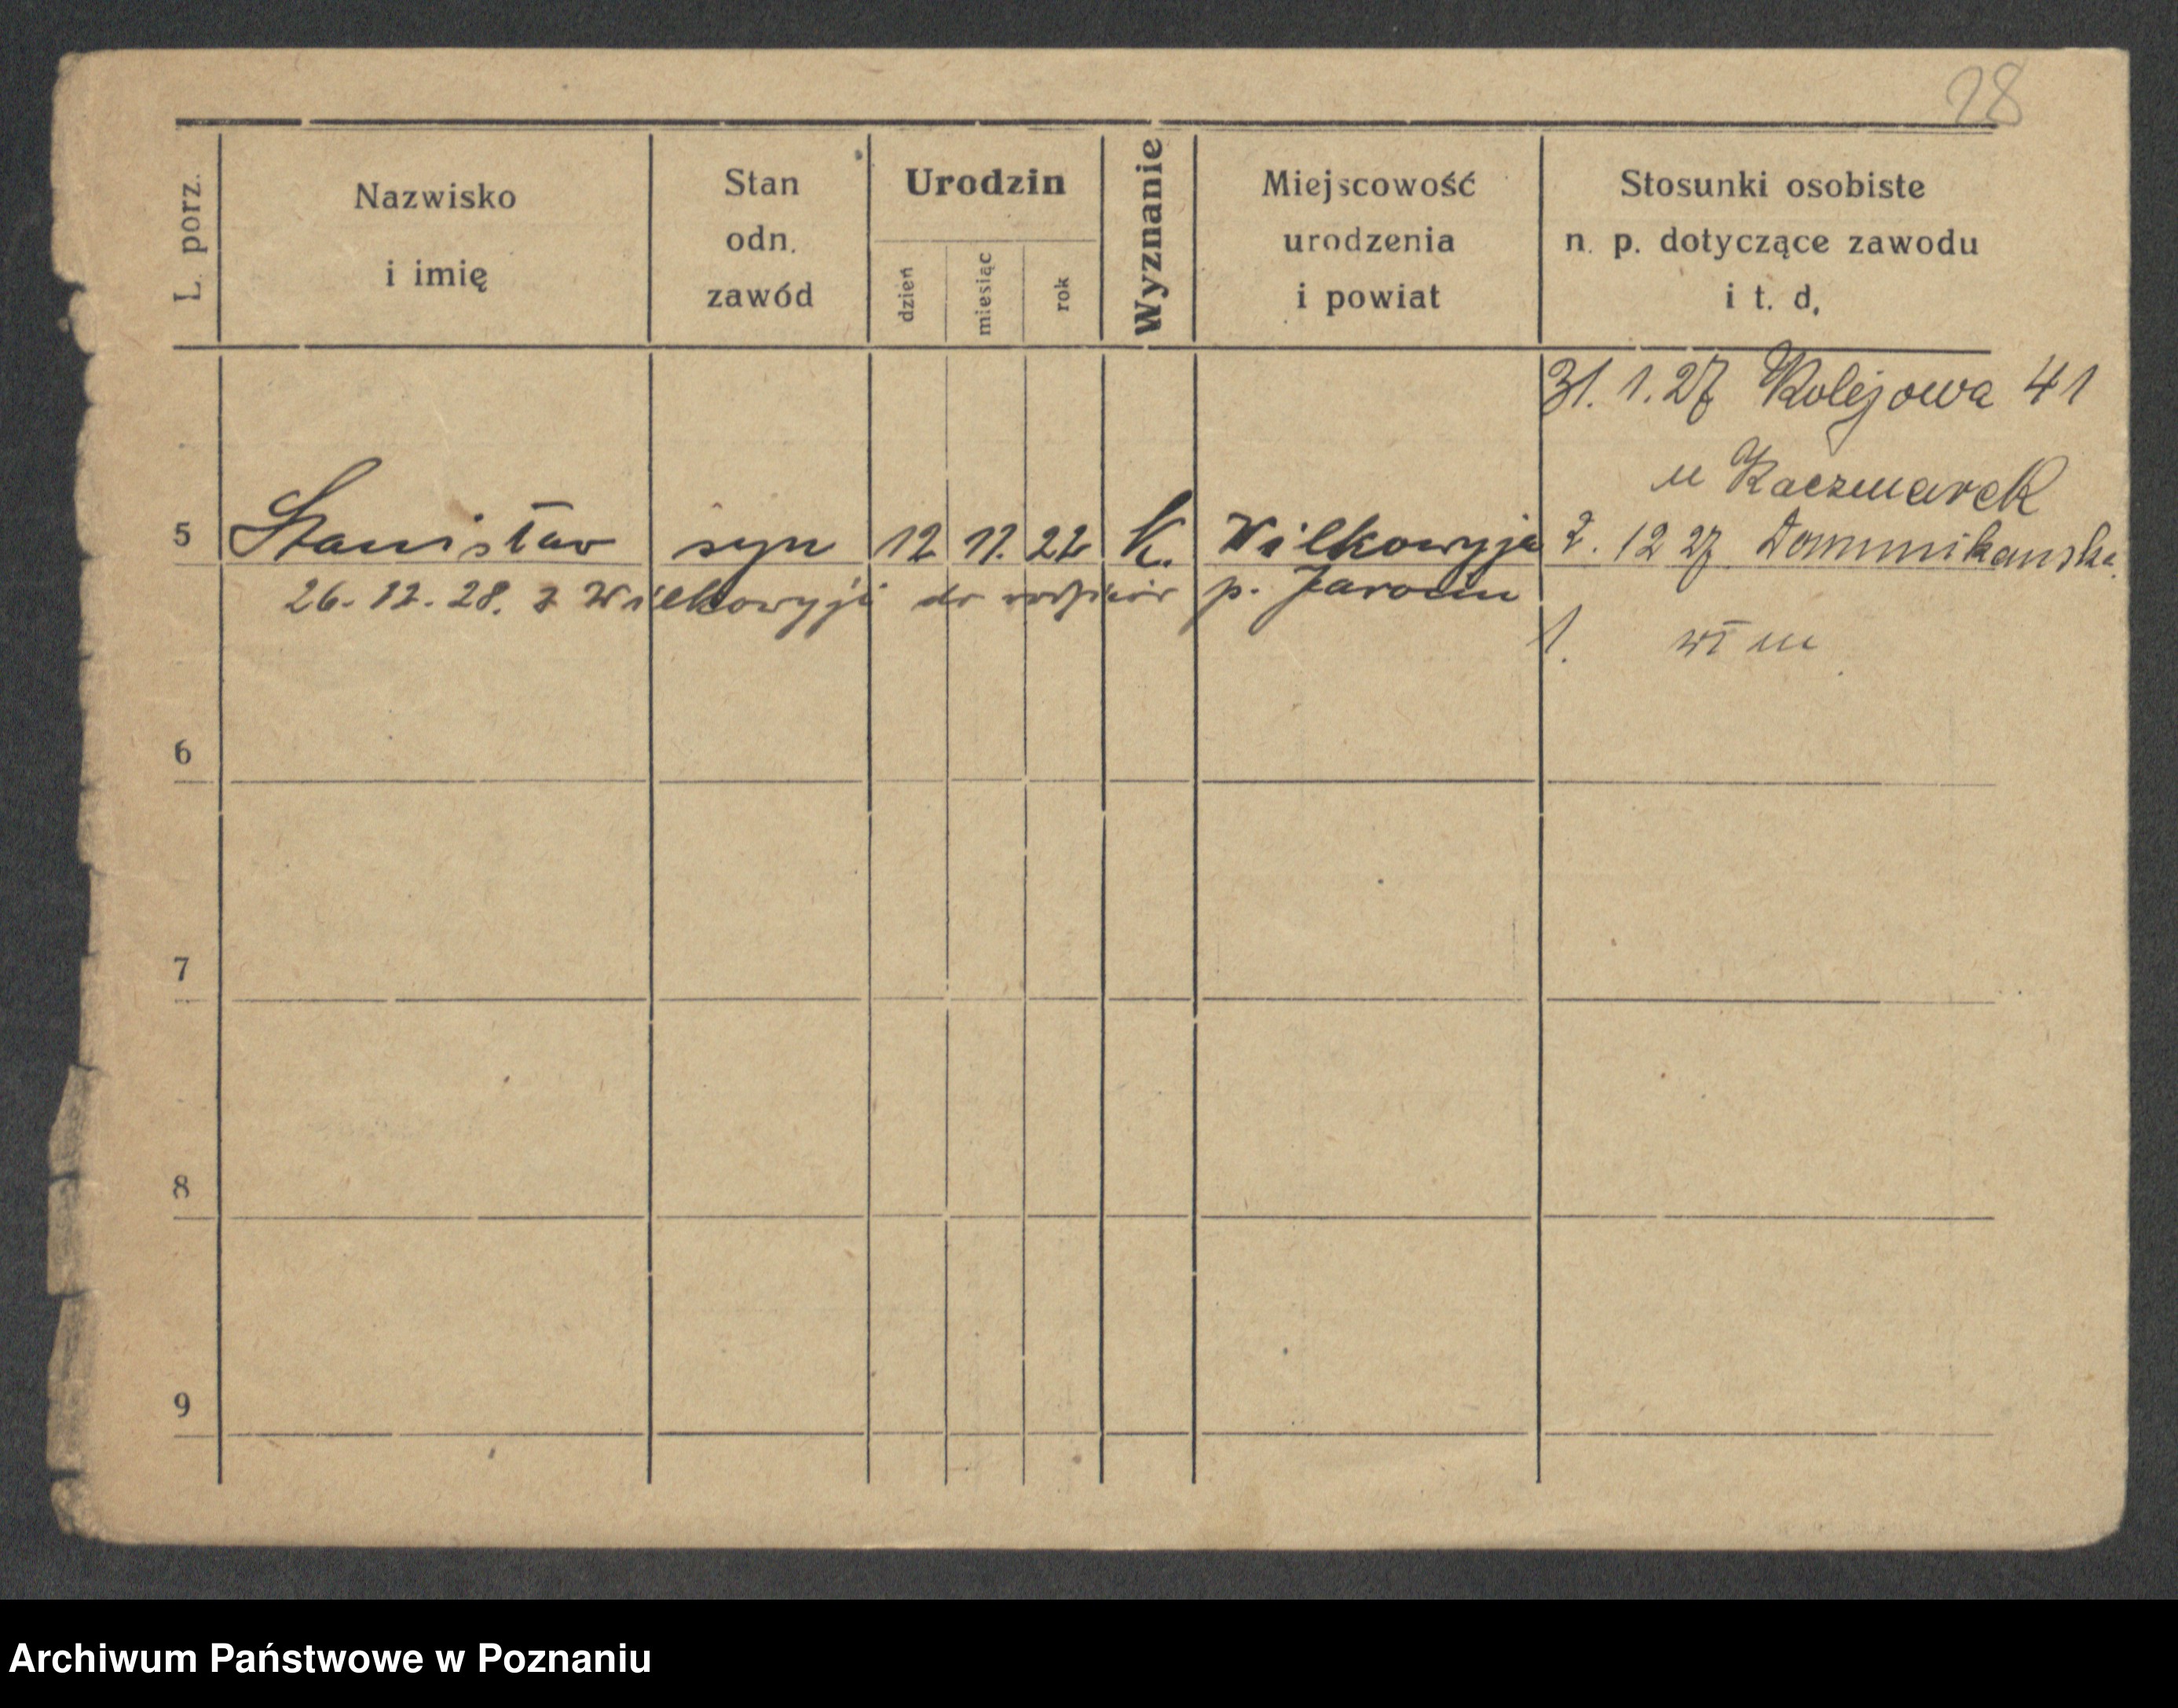 28
L. porz.
Nazwisko
i imię
Stan
odn.
zawód
Urodzin
dzień
miesiąc
rok
Wyznanie
Miejscowość
urodzenia
i powiat
Stosunki osobiste
n. p. dotyczące zawodu
i t. d.
31. 1. 27 Kolejowa 41
u Kaczmarek
5 Stanisław syn 12 11. 22 k. Wilkowyja 2. 12 27 Dominikańska
26. 12. 28. z Wilkowyji do rodziców p. Jarocin
1. wł m
6
7
8
9
Archiwum Państwowe w Poznaniu